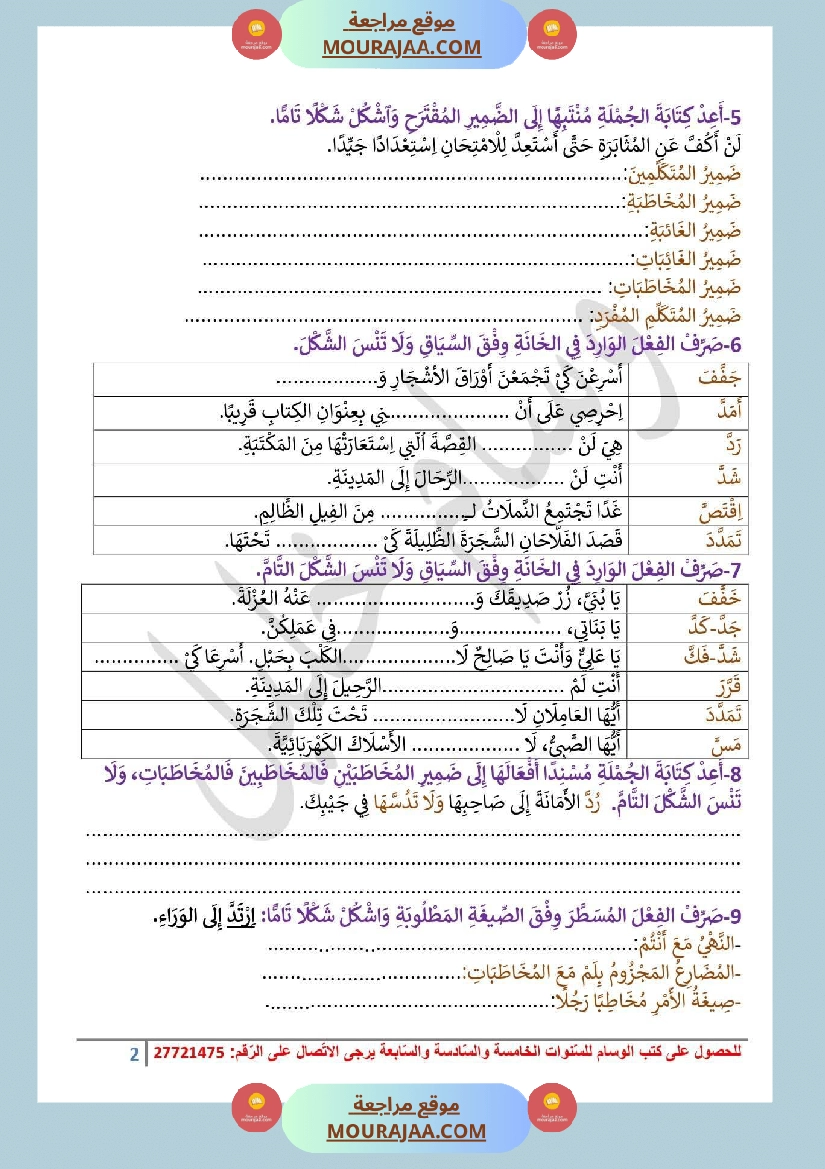 موقع مراجعة
MOURAJAA.COM
5-أَعِدْ كِتَابَةَ الجُمْلَةِ مُنْتَبِهًا إِلَى الضَّمِيرِ المُقْتَرَحِ وَاَشْكُلْ شَكْلًا تَامًّا.
لَنْ أَكُفَّ عَنِ المُثَابَرَةِ حَتَّى أَسْتَعِدَّ لِلْامْتِحَانِ اِسْتِعْدَادًا جَيِّدًا.
ضَمِيرُ المُتَكَلِّمِينَ:......................................................................
ضَمِيرُ المُخَاطَبَةِ:......................................................................
ضَمِيرُ الغَائبَةِ:......................................................................
ضَمِيرُ الغَائِبَاتِ:......................................................................
ضَمِيرُ المُخَاطَبَاتِ: ......................................................................
ضَمِيرُ المُتَكَلِّمِ المُفْرَدِ: ......................................................................
6-صَرِّفْ الفِعْلَ الوَارِدَ فِي الخَانَةِ وِفْقَ السِّيَاقِ وَلَا تَنْسَ الشَّكْلَ.
جَفَّفَ أَسْرِعْنَ كَيْ تَجْمَعْنَ أَوْرَاقَ الأشْجَارِ وَ..................
أَمَدَّ اِحْرِصِي عَلَى أَنْ .....................نِي بِعِنْوَانِ الكِتابِ قَرِيبًا.
رَدَّ هِيَ لَنْ ................ القِصَّةَ اَلَّتِي اِسْتَعَارَتْهَا مِنَ المَكْتَبَةِ.
شَدَّ أَنْتِ لَنْ ..................الرِّحَالَ إِلَى المَدِينَةِ.
اِقْتَصَّ غَدًا تَجْتَمِعُ النَّملَاتُ لـِ............... مِنَ الفِيلِ الظَّالِمِ.
تَمَدَّدَ قَصَدَ الفَلَّاحَانِ الشَّجَرَةَ الظَّلِيلَةَ كَيْ .................. تَحْتَهَا.
7-صَرِّفْ الفِعْلَ الوَارِدَ فِي الخَانَةِ وِفْقَ السِّيَاقِ وَلَا تَنْسَ الشَّكْلَ التَّامَّ.
خَفَّفَ يَا بُنَيَّ، زُرْ صَدِيقَكَ وَ............................ عَنْهُ العُزْلَةَ.
جَدَّ-كَدَّ يَا بَنَاتِي، ..................وَ....................فِي عَمَلِكُنَّ.
شَدَّ-فَكَّ يَا عَلِيٌّ وَأَنْتَ يَا صَالِحٌ لَا....................الكَلْبَ بِحَبْلٍ. أَسْرِعَا كَيْ ...............
قَرَّرَ أَنْتِ لَمْ ................................الرَّحِيلَ إِلَى المَدِينَةِ.
تَمَدَّدَ أَيُّهَا العَامِلَانِ لَا......................... تَحْتَ تِلْكَ الشَّجَرَةِ.
مَسَّ أَيُّهَا الصَّبِيُّ، لَا ................... الأَسْلَاكَ الكَهْرَبَائِيَّةَ.
8-أَعِدْ كِتَابَةَ الجُمْلَةِ مُسْنِدًا أَفْعَالَهَا إِلَى ضَمِيرِ المُخَاطَبَيْنِ فَالمُخَاطَبِينَ فَالمُخَاطَبَاتِ، وَلَا
تَنْسَ الشَّكْلَ التَّامَّ. رُدَّ الأَمَانَةَ إِلَى صَاحِبِهَا وَلَا تَدُسَّهَا فِي جَيْبِكَ.
....................................................................................................
....................................................................................................
....................................................................................................
9-صَرِّفْ الفِعْلَ المُسَطَّرَ وِفْقَ الصِّيغَةِ المَطْلُوبَةِ وَاشْكُلْ شَكْلًا تَامًّا: اِرْتَدَّ إِلَى الوَرَاءِ.
-النَّهْيُ مَعَ أَنْتُمْ:..............................................................
-المُضَارِعُ المَجْزُومُ بِلَمْ مَعَ المُخَاطَبَاتِ:...................................
-صِيغَةُ الأَمْرِ مُخَاطِبًا رَجُلًا:.................................................
للحصول على كتب الوسام للسّنوات الخامسة والسّادسة والسّابعة يرجى الاتّصال على الرّقم: 27721475 2
موقع مراجعة
MOURAJAA.COM